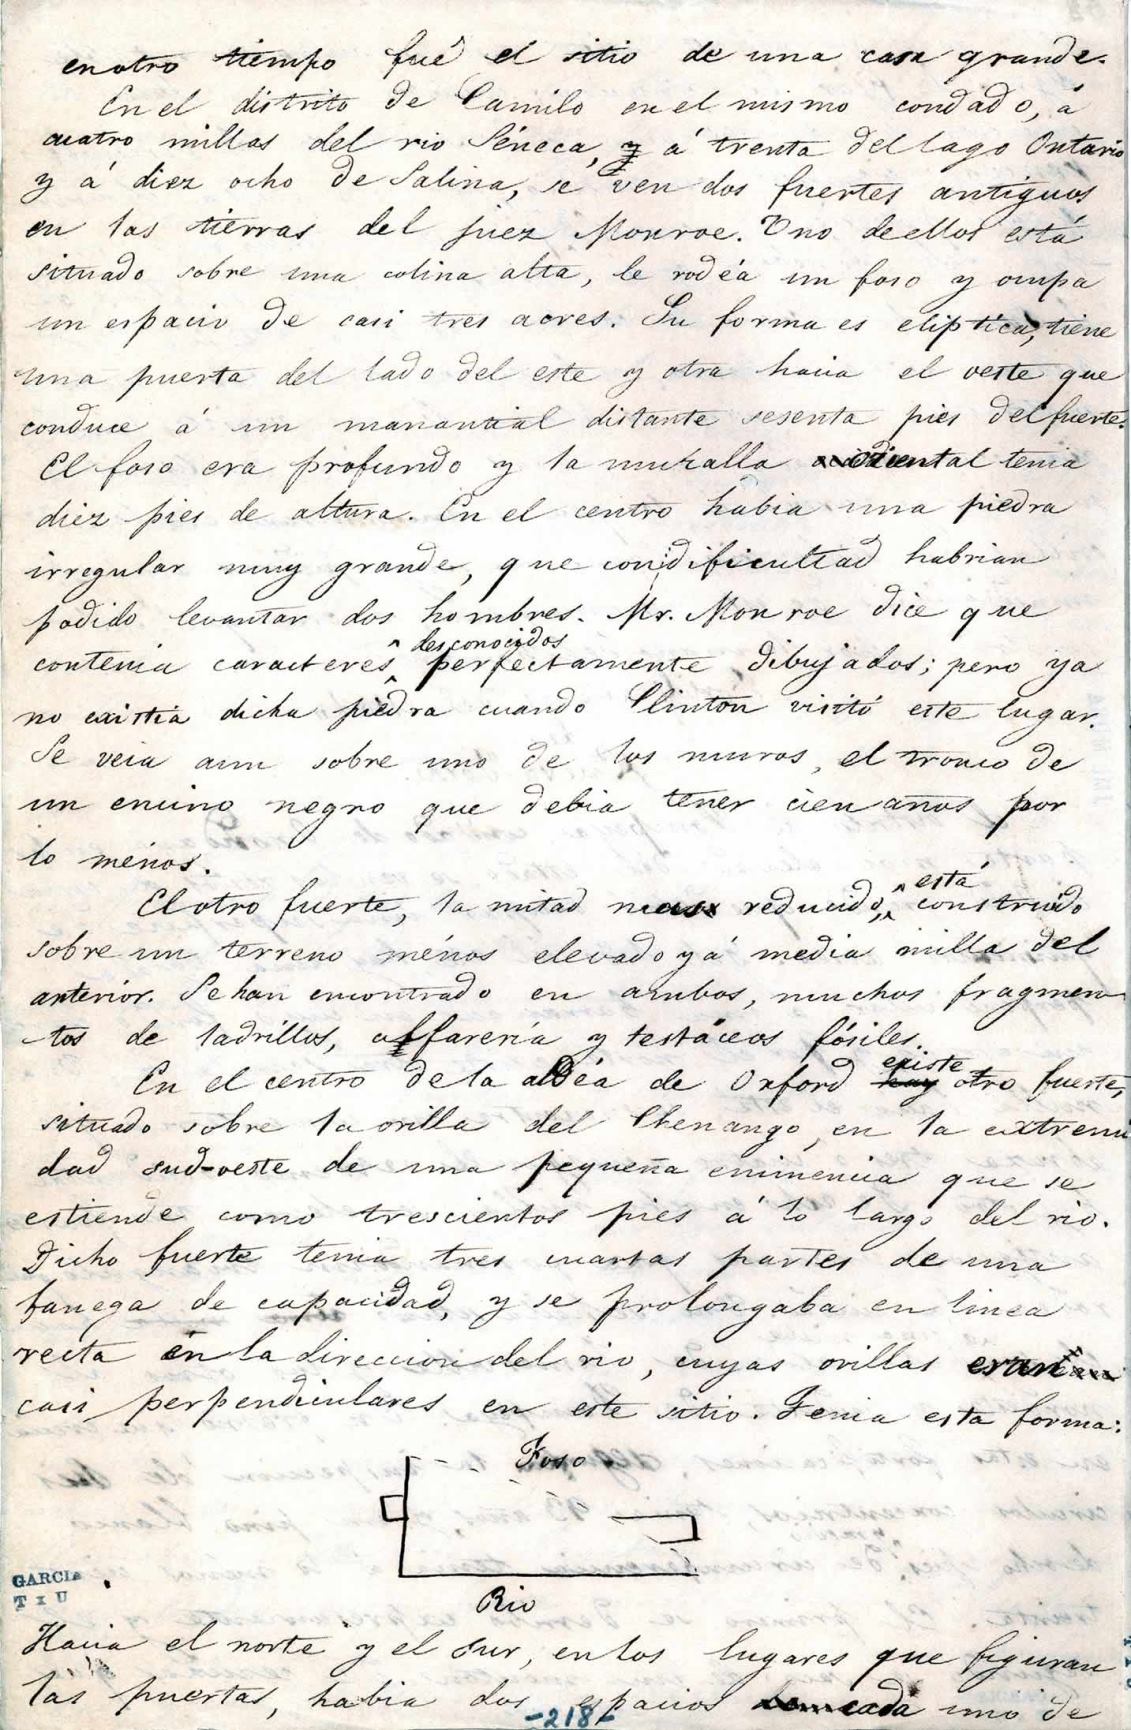 en otro tiempo fué el sitio de una casa grande.
En el distrito de Camilo en el mismo condado, á
cuatro millas del rio Séneca, y á trenta del lago Ontario
y á diez ocho de Salina, se ven dos fuertes antiguos
en las tierras del juez Monroe. Uno de ellos está
situado sobre una colina alta, le rodéa un foso y ocupa
un espacio de casi tres acres. Su forma es eliptica, tiene
una puerta del lado del este y otra hacia el oeste que
conduce á un manantial distante sesenta pies del fuerte.
El foso era profundo y la muralla oriental tenia
diez pies de altura. En el centro habia una piedra
irregular muy grande, que con dificultad habrian
podido levantar dos hombres. Mr. Monroe dice que
desconocidos
contenia caracteres perfectamente dibujados; pero ya
no existia dicha piedra cuando Clinton visitó este lugar.
Se veia aun sobre uno de los muros, el tronco de
un encino negro que debia tener cien años por
lo ménos.
está
El otro fuerte, la mitad mas reducido, construido
sobre un terreno ménos elevado y á media milla del
anterior. Se han encontrado en ambos, muchos fragmen-
tos de ladrillos, alfarería y testáceos fósiles.
existe
En el centro de la aldéa de Oxford hay otro fuerte,
situado sobre la orilla del Chenango, en la extremi
dad sud-oeste de una pequeña eminencia que se
estiende como trescientos pies á lo largo del rio.
Dicho fuerte tenia tres cuartas partes de una
fanega de capacidad, y se prolongaba en linea
recta en la direccion del rio, cuyas orillas eran
casi perpendiculares en este sitio. Tenia esta forma:
Foso
Rio
GARCIA
Hacia el norte y el sur, en los lugares que figuran
las puertas, habia dos espacios cada uno de
-218-